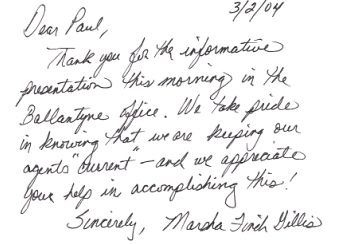 3/2/04
Dear Paul,
Thank you for the informative
presentation this morning in the
Ballantyne office. We take pride
in knowing that we are keeping our
agents "current" – and we appreciate
your help in accomplishing this!
Sincerely, Marsha Finch Gillis